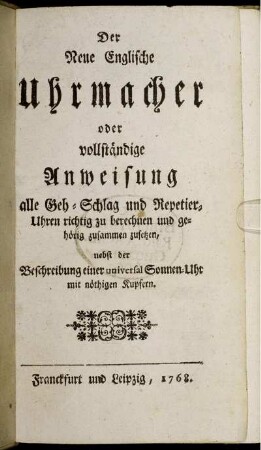 Der
Neue Englische
Uhrmacher
oder
vollständige
Anweisung
alle Geh-Schlag und Repetier-
Uhren richtig zu berechnen und ge-
hörig zusammen zusetzen,
nebst der
Beschreibung einer universal Sonnen-Uhr
mit nöthigen Kupfern.
Franckfurt und Leipzig, 1768.